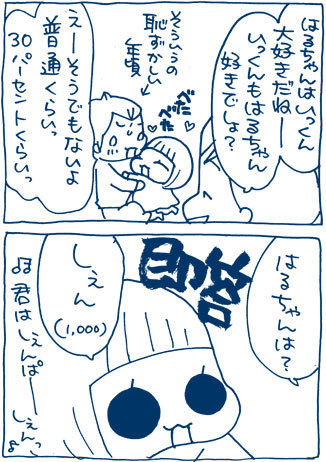 はるちゃんはいっくん
大好きだねー
いっくんもはるちゃん
好きでしょ?
そういうの
恥ずかしい
年頃
べた
べた
えーそうでもないよ
普通くらいっ
30パーセントくらいっ
はるちゃんは?
しぇん
(1,000)
君はしぇんぱー
しぇんっ